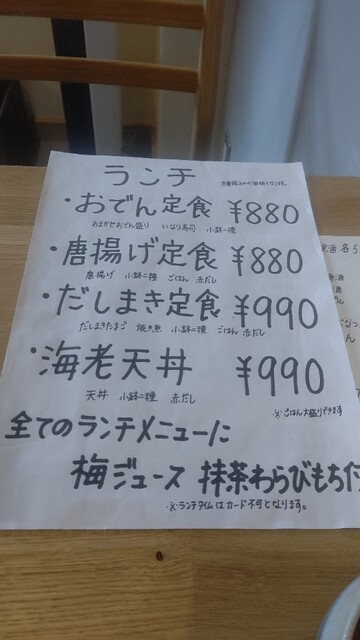 ランチ
・おでん定食 ¥880
おまかせおでん盛り いなり寿司 小鉢二種
・唐揚げ定食 ¥880
唐揚げ 小鉢二種 ごはん 赤だし
・だしまき定食 ¥990
だしまきたまご 焼き魚 小鉢二種 ごはん 赤だし
・海老天丼 ¥990
天丼 小鉢二種 赤だし
※ごはん大盛りできます
全てのランチメニューに
梅ジュース 抹茶わらびもち付
※ランチタイムはカード不可となります。